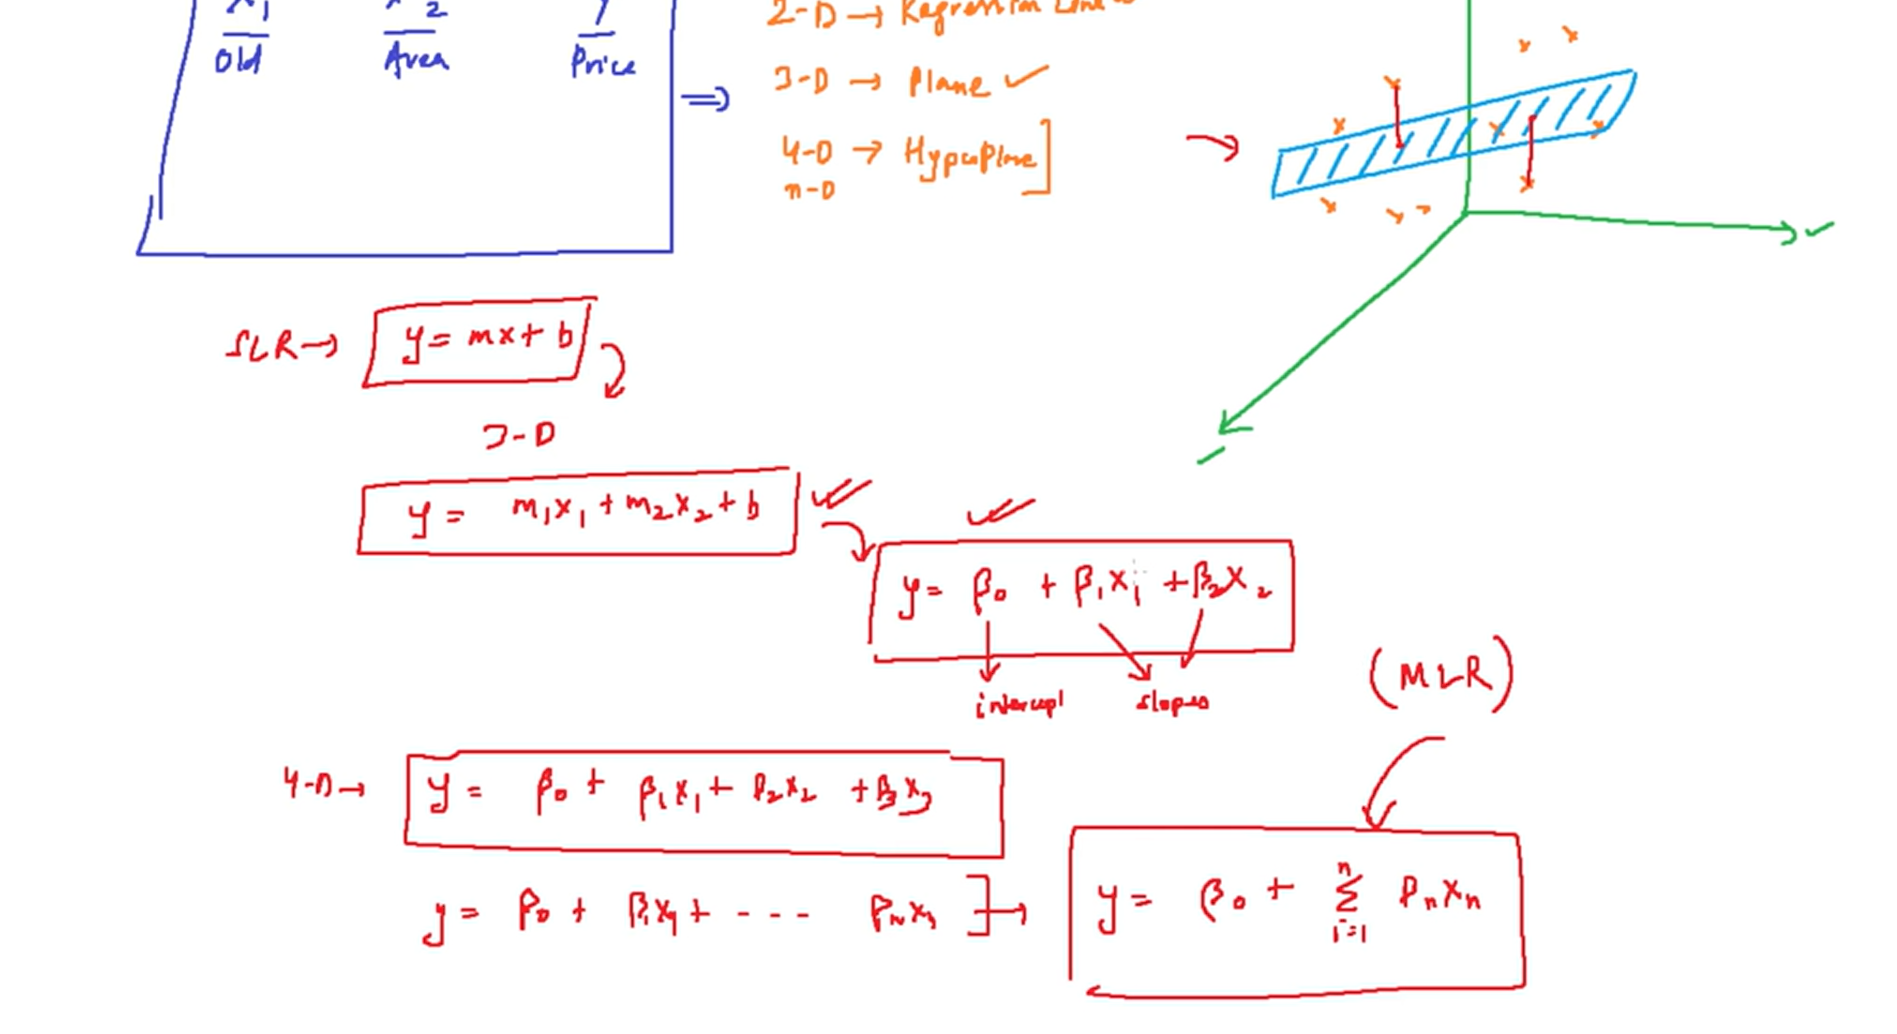 x1 x2 y
Old Area Price
2-D → Regression Line
3-D → Plane ✓
4-D → HyperPlane]
n-D
SLR → y = mx + b
3-D
y = m1x1 + m2x2 + b
y = β0 + β1x1 + β2x2
intercept slopes
(MLR)
4-D → y = β0 + β1x1 + β2x2 + β3x3
y = β0 + β1x1 + - - - βnxn ] →
y = β0 + n Σ i=1 βnxn